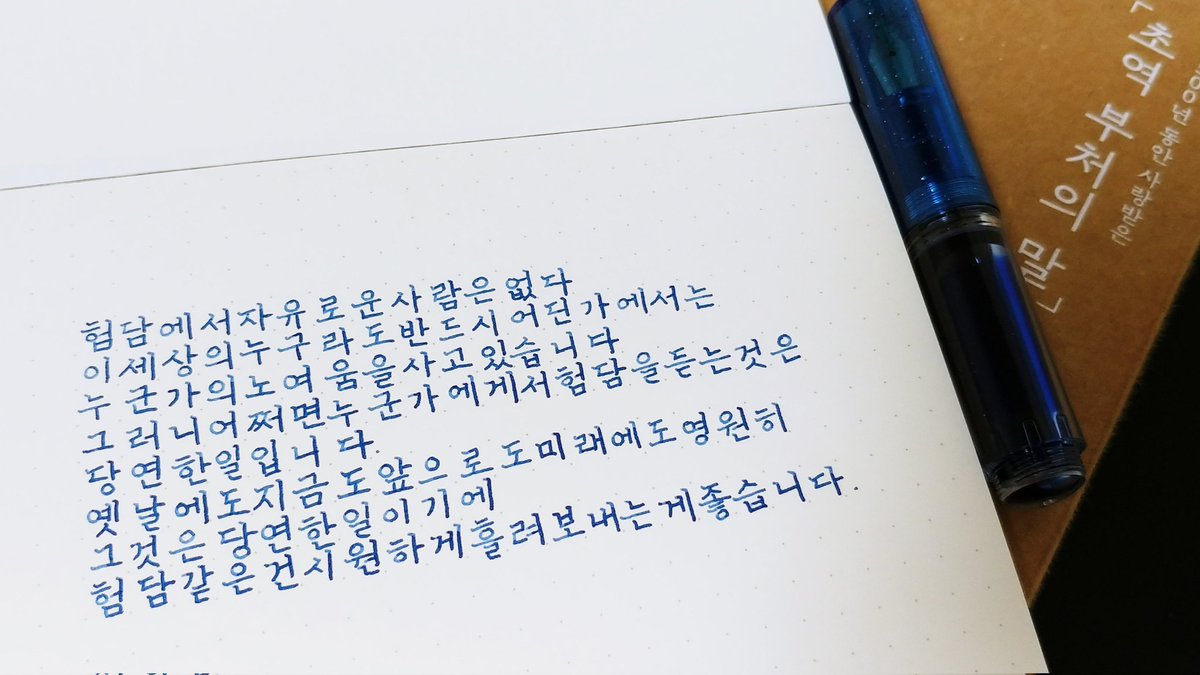 험담에서자유로운사람은없다
이세상의누구라도반드시어딘가에서는
누군가의노여움을사고있습니다
그러니어쩌면누군가에게서험담을듣는것은
당연한일입니다.
옛날에도지금도앞으로도미래에도영원히
그것은당연한일이기에
험담같은건시원하게흘려보내는게좋습니다.
년 동안 사랑받은
「초역 부처의 말」